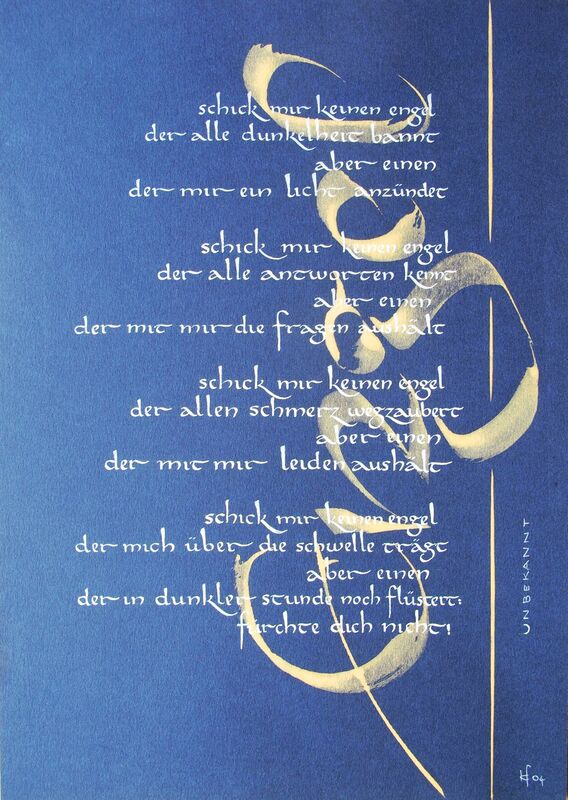 schick mir keinen engel
der alle dunkelheit bannt
aber einen
der mir ein licht anzündet
schick mir keinen engel
der alle antworten kennt
aber einen
der mit mir die fragen aushält
schick mir keinen engel
der allen schmerz wegzaubert
aber einen
der mit mir leiden aushält
schick mir keinen engel
der mich über die schwelle trägt
aber einen
der in dunkler stunde noch flüstert:
fürchte dich nicht!
UNBEKANNT
04